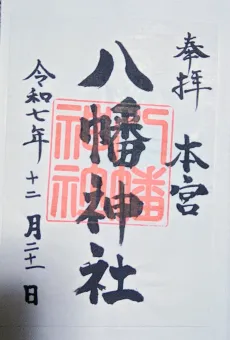 奉拝
本宮
八幡神社
八幡
神社
令和七年十二月二十一日